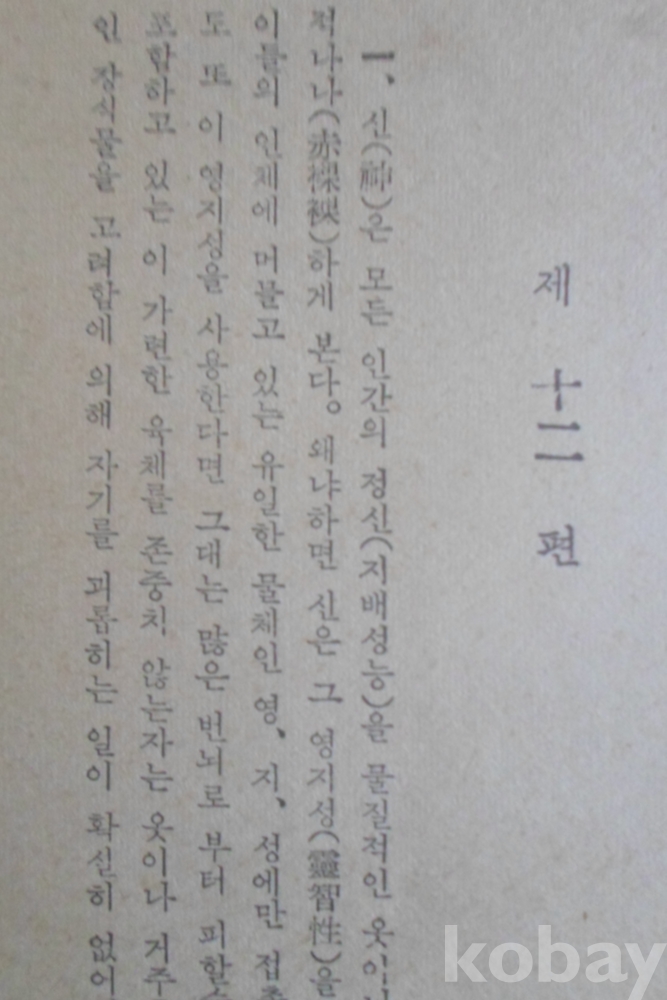 제 十二 편
一、 신(神)은 모든 인간의 정신(지배성능)을 물질적인 옷이
적나나(赤裸裸)하게 본다。 왜냐하면 신은 그 영지성(靈智性)을
이들의 인체에 머물고 있는 유일한 물체인 영、 지、 성에만 접
도 또 이 영지성을 사용한다면 그대는 많은 번뇌로 부터 피할
포함하고 있는 이 가련한 육체를 존중치 않는자는 옷이나 거주
인 장식물을 고려함에 의해 자기를 괴롭히는 일이 확실히 없어
kobay